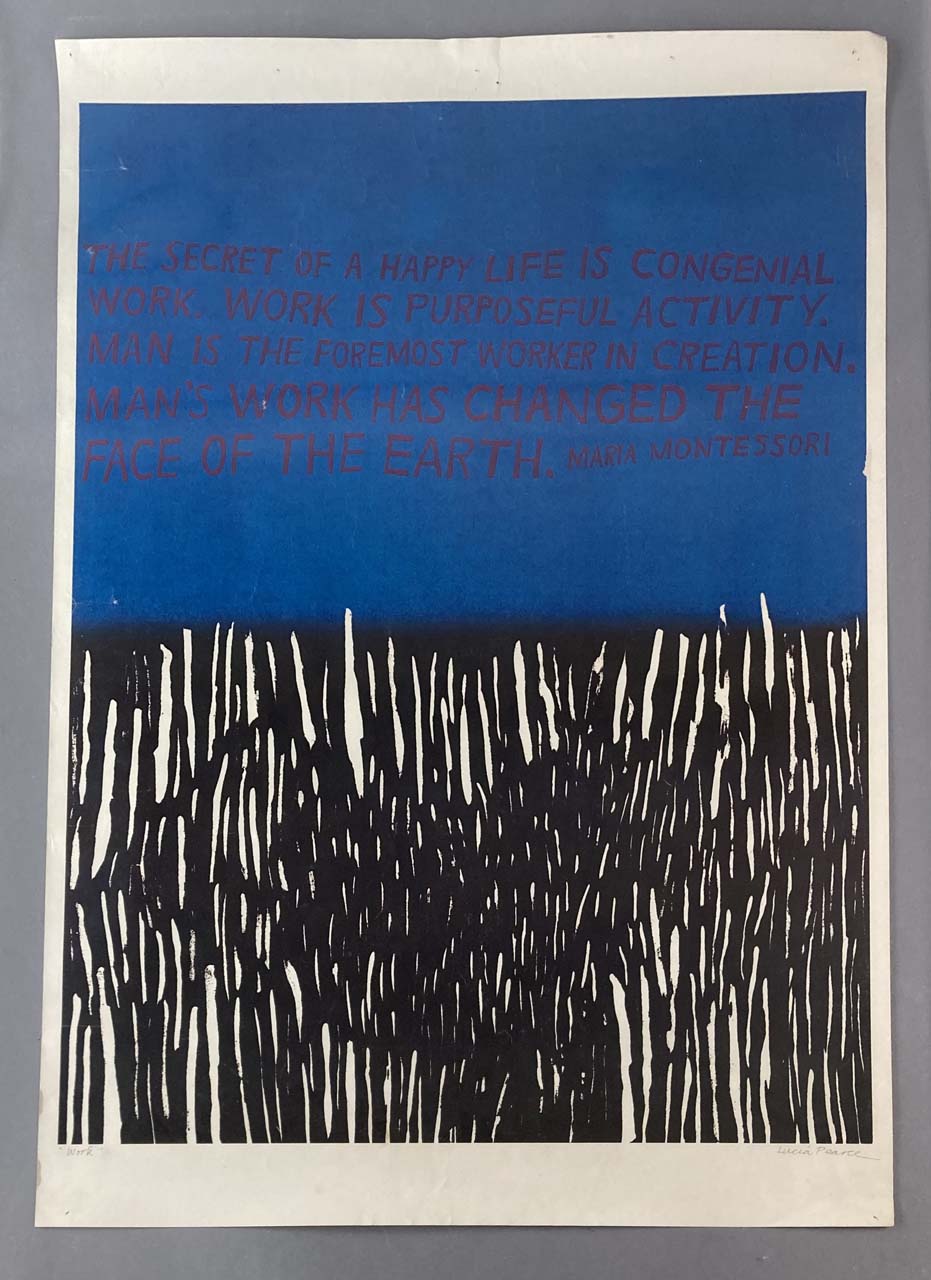 THE SECRET OF A HAPPY LIFE IS CONGENIAL
WORK. WORK IS PURPOSEFUL ACTIVITY.
MAN IS THE FOREMOST WORKER IN CREATION.
MAN'S WORK HAS CHANGED THE
FACE OF THE EARTH. MARIA MONTESSORI
"Work"
Lucia Pearce